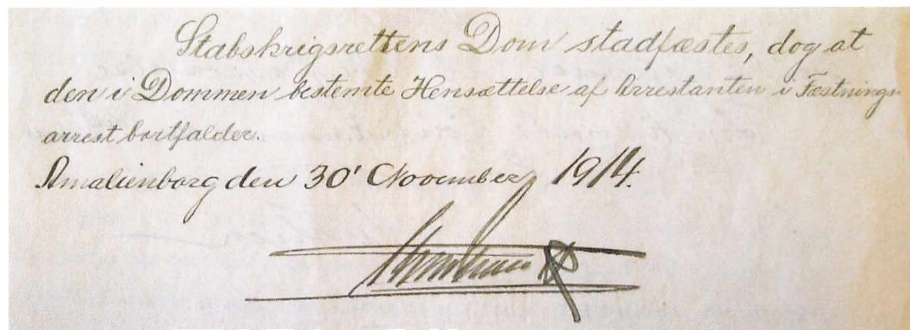 Stabskrigsrettens Dom stadfæstes, dog at
den i Dommen bestemte Hensættelse af Arrestanten i Fæstnings-
arrest bortfalder.
Amalienborg den 30' November 1914.